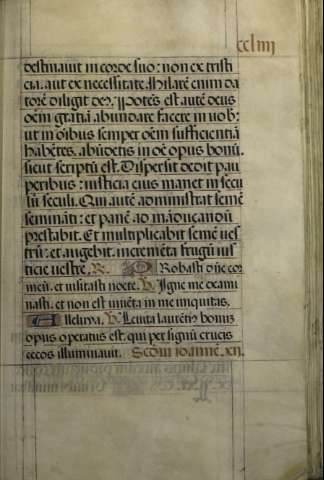 ccliiij
destinauit in corde suo: non ex tristi
cia. aut ex necessitate. Hilarē enim da
torē diligit deꝰ. Potēs est autē deus
oēm gratiā abundare facere in uob̄:
ut in oībus semper oēm sufficientiā
habētes. abūdetis in oē opus bonū.
sicut scriptū est. Dispersit dedit pau
peribus: iusticia eius manet in secu
lū seculi. Qui autē administrat semē
semināti: et panē ad māducandū
prestabit. Et multiplicabit semē ves
trū: et augebit incremēta frugū ius
ticie uestre. R. Probasti dn̄e cor
meū. et uisitasti nocte. V. Igne me exami
nasti. et non est inuēta in me iniquitas.
Alleluya. V. Leuita laurētiꝰ bonum
opus operatus est. qui per signū crucis
cecos illuminauit. Scd̄m ioannē. xij.